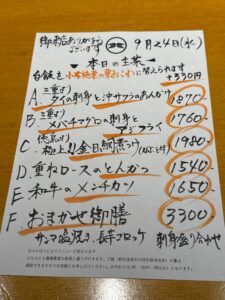 御来店ありがとう
ございます
北
9月24日(水)
本日の主菜
白飯を小布施栗の栗おこわに替えられます
+330円
A. 三重産 タイの刺身と沖サワラのあんかけ 1870-
B. 三重産 メバチマグロの刺身と
アジフライ 1760-
C. 徳島産 極上!! 金目鯛煮つけ(かぶと付) 1980-
D. 重ねロースのとんかつ 1540
E. 和牛のメンチカツ 1650
F. おまかせ御膳 3300-
サンマ塩焼き 長芋コロッケ 刺身盛り合わせ